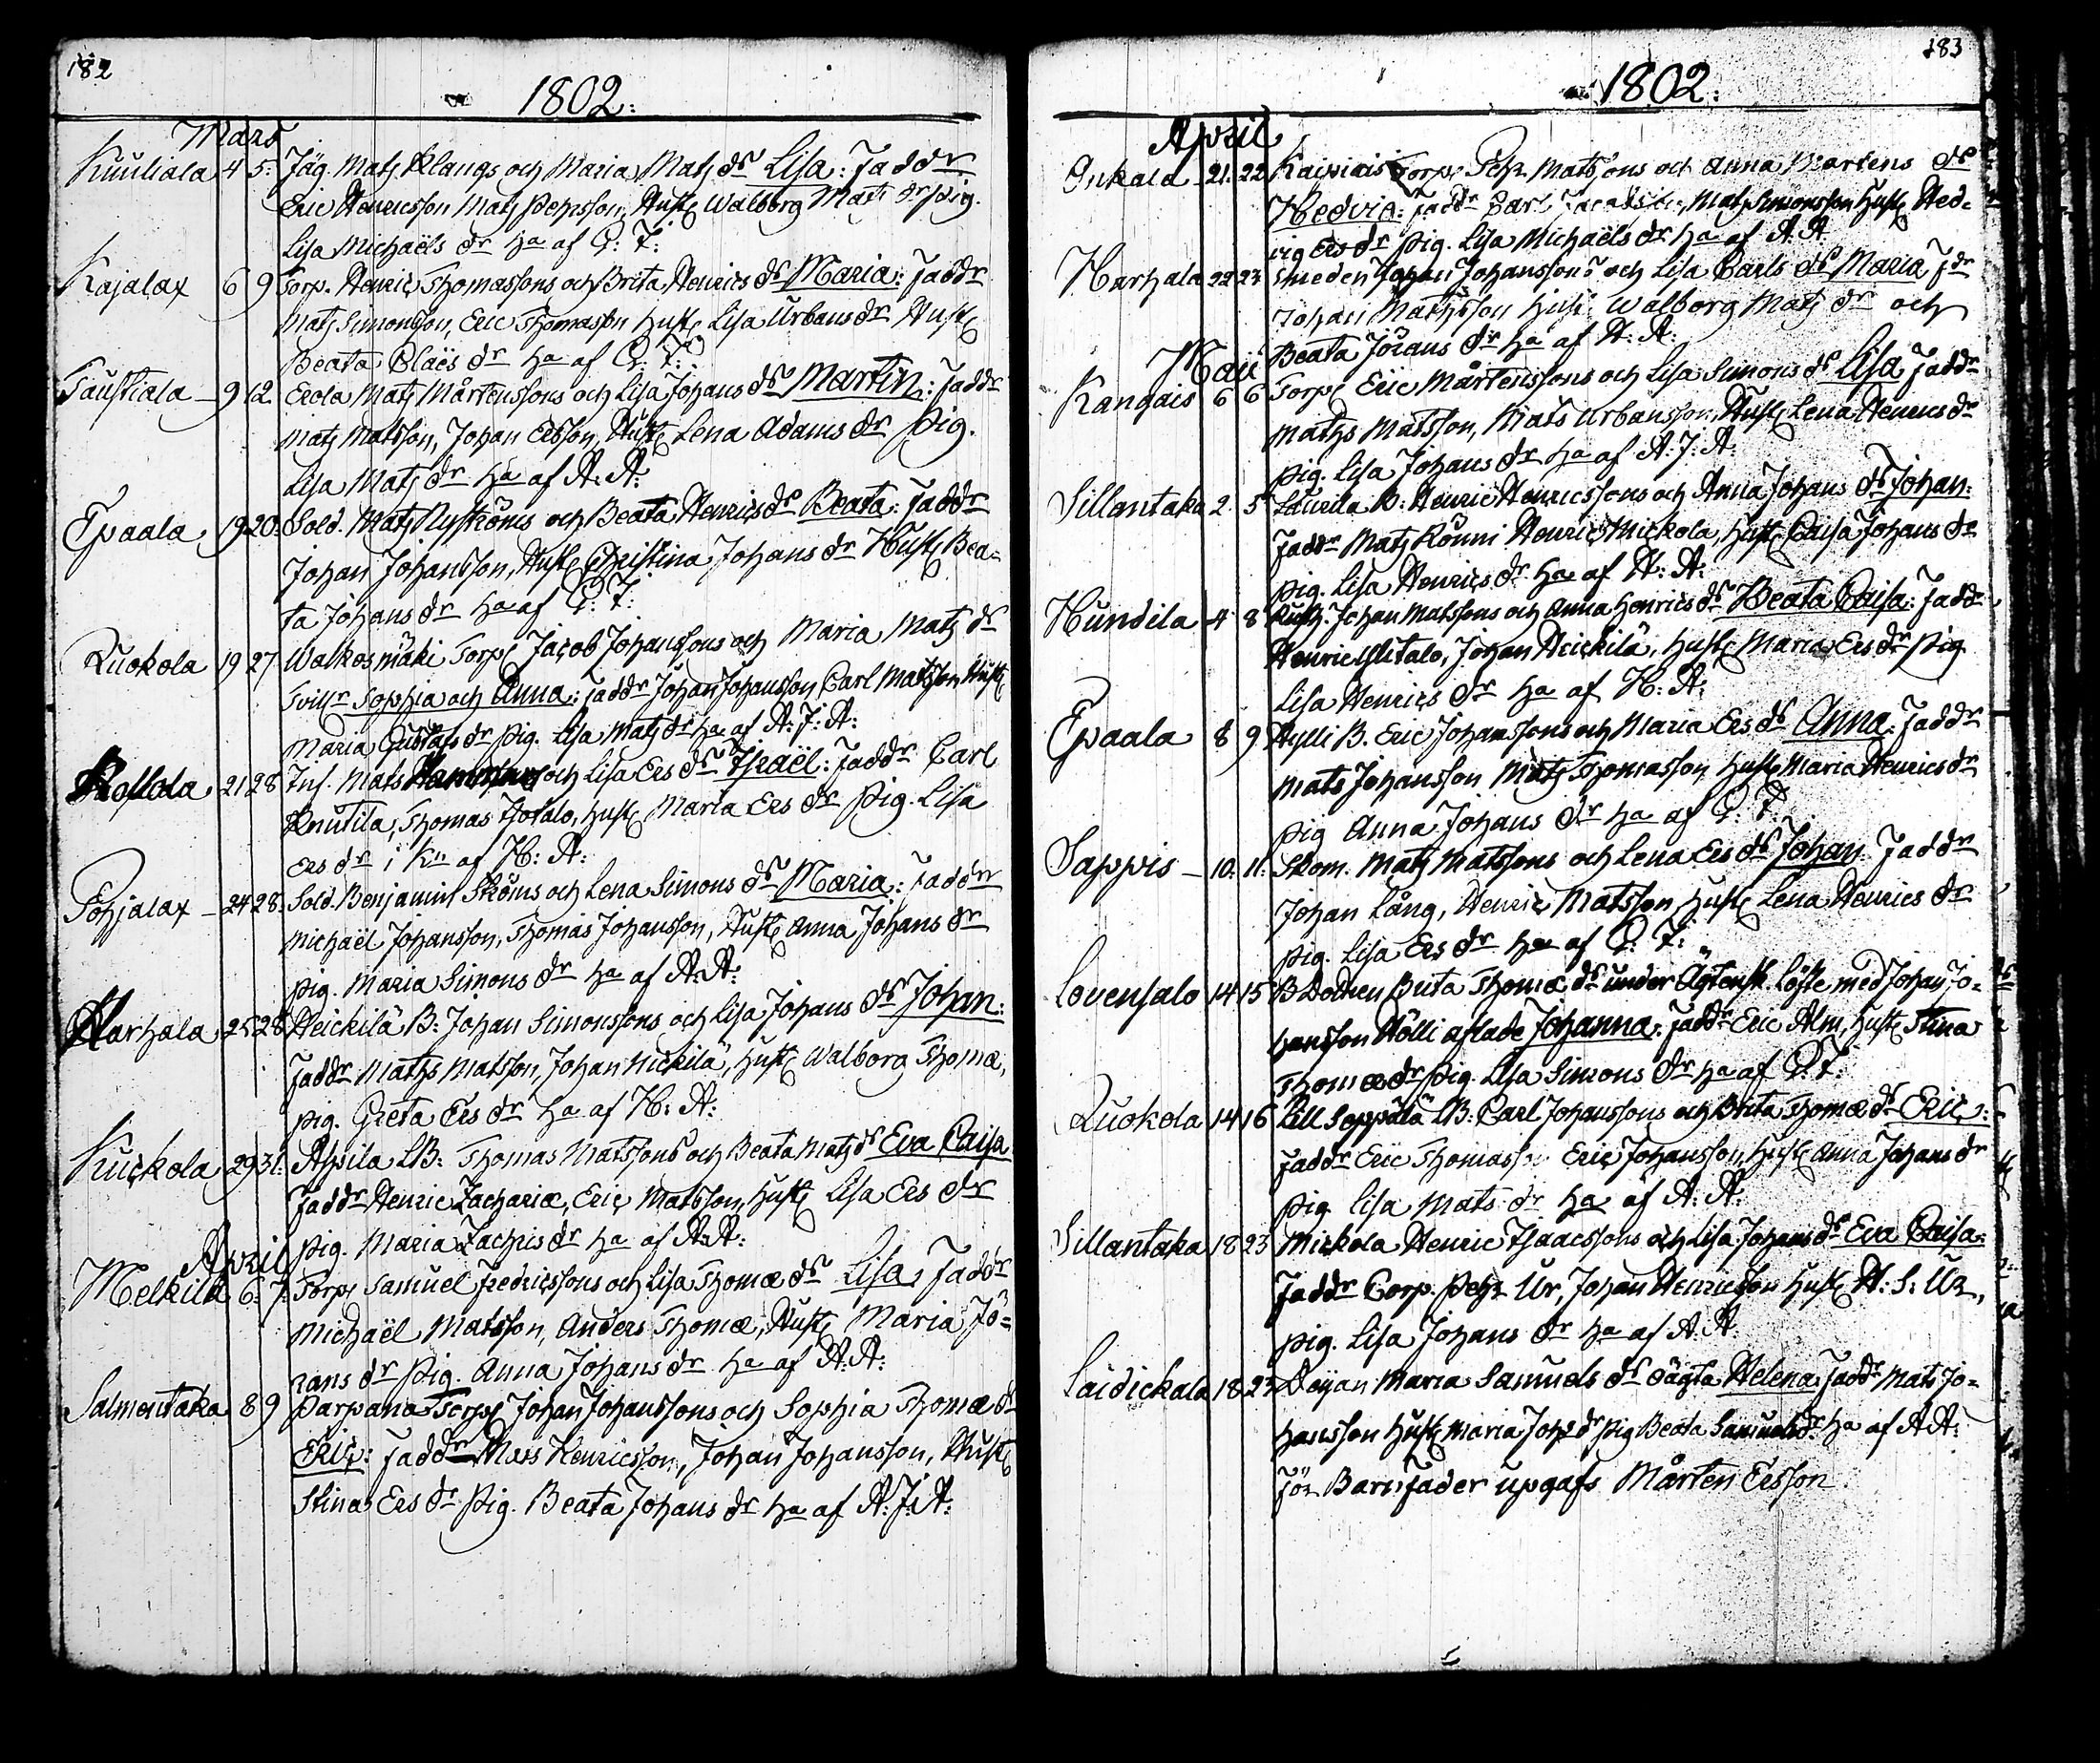 182
1802:
Mars
Kuuliala 4 5. Jäg. Mats Klangs och Maria Mats dr Lisa: Faddr
Eric Henricsson Mats Pehrsson, Hust. Walborg Mats dr pig.
Lisa Michaëls dr ha af C: F:
Kajalax 6 9 Torp. Henric Thomassons och Brita Henrics dr Maria: Faddr
Mats Simonsson, Eric Thomasson Hust. Lisa Urbans dr Hust.
Beata Claës dr ha af C: F:
Taustiala 9 12 Erola Mats Mårtenssons och Lisa Johans dr Martin: Faddr
Mats Matsson, Johan Ersson, Hust. Lena Adams dr Pig.
Lisa Mats dr ha af A: A:
Epaala 19 20. Sold. Mats Nyströms och Beata Henrics dr Beata: Faddr
Johan Johansson, Hust. Christina Johans dr Hust. Bea=
ta Johans dr ha af C: F:
Ruokola 19 27 Walkosmäki Torp. Jacob Johanssons och Maria Mats dr
Tvillr Sophia och Anna: Faddr Johan Johansson Carl Matsson Hust.
Maria Gustafs dr Pig. Lisa Mats dr ha af A: J: A:
21 28 Inh. Mats och Lisa Ers dr Israël: Faddr Carl
Knutila, Thomas Hust. Maria Ers dr Pig. Lisa
Ers dr i Kn af H: A:
Pohjalax 24 28. Sold. Benjamin Ströms och Lena Simons dr Maria: Faddr
Michaël Johansson, Thomas Johansson, Hust. Anna Johans dr
pig. Maria Simons dr ha af A: A:
Harhala 25 28 Heickilä B: Johan Simonssons och Lisa Johans dr Johan:
Faddr Maths Matsson, Johan Heickilä, Hust. Walborg Thomæ,
pig. Greta Ers dr ha af H: A:
Kuckola 29 31. LB: Thomas Matssons och Beata Mats dr Eva Caisa
Faddr Henric Zachariæ, Eric Matsson, Hust. Lisa Ers dr
Pig. Maria Zachris dr ha af A: A:
April
Melkila 6. 7. Torp. Samuel Fredricssons och Lisa Thomæ dr Lisa, Faddr
Michaël Matsson, Anders Thomæ, Hust. Maria Jö=
rans dr Pig. Anna Johans dr ha af A: A:
Salmentaka 8 9 Parpana Torp. Johan Johanssons och Sophia Thomæ dr
Eric: Faddr Mats Henricsson, Johan Johansson, Hust.
Stina Ers dr Pig. Beata Johans dr ha af A: J: A:
183
1802:
April
Onkala 21. 22 Torp. Pehr Matssons och Anna Martens dr
Hedvig: Faddr Carl Mats Simonsson Hust. Hed=
vig Ers dr Pig. Lisa Michaëls dr ha af A: A:
Harhala 22 23 Smeden Johan Johanssons och Lisa Carls dr Maria Fdr
Johan Mathsson Hust. Walborg Mats dr och
Beata Jörans dr ha af A: A:
Maii
Kangais 6 6 Torp. Eric Mårtenssons och Lisa Simons dr Lisa Faddr
Maths Matsson, Mats Urbansson, Hust. Lena Henrics dr
pig. Lisa Johans dr ha af A: J: A:
Sillantaka 2 5 Laurila B: Henric Henricssons och Anna Johans dr Johan:
Faddr Mats Könni Henric Mickola, Hust. Caisa Johans dr
pig. Lisa Henrics dr ha af A: A:
Hundila 4 8 Rusth. Johan Matssons och Anna Henrics dr Beata Caisa: Faddr
Henric Ylitalo, Johan Heickilä, Hust. Maria Ers dr Pig.
Lisa Henrics dr ha af H: A:
Epaala 8 9 Hylli B. Eric Johanssons och Maria Ers dr Anna: Faddr
Mats Johansson Mats Thomasson Hust. Maria Henrics dr
pig Anna Johans dr ha af C: F:
Sappis 10. 11. Skom. Mats Matssons och Lena Ers dr Johan Faddr
Johan Lång, Henric Matsson, Hust. Lena Henrics dr
pig. Lisa Ers dr ha af C: F:
Lovensalo 14 15 B Dottren Brita Thomæ dr under Ägtensk. Löfte med Johan Jo=
hansson Hölli aflade Johanna: Faddr Eric Alm, Hust. Stina
Thomæ dr Pig. Lisa Simons dr ha af C: F:
Ruokola 14 16 Lill Seppälä LB: Carl Johanssons och Brita Thomæ dr Eric:
Faddr Eric Thomasson Eric Johansson, Hust. Anna Johans dr
pig. Lisa Mats dr ha af A: A:
Sillantaka 18 23 Mickola Henric Isaacssons och Lisa Johans dr Eva Caisa:
Faddr Corp. Pehr Ur, Johan Henricsson Hust. H: S: Ur,
pig. Lisa Johans dr ha af A: A:
Laidickala 18 23 Maria Samuels dr oägta Helena Faddr Mats Jo=
hansson Hust. Maria Johs dr Pig Beata Samuels dr ha af A A:
För Barnfader upgafs Mårten Ersson.